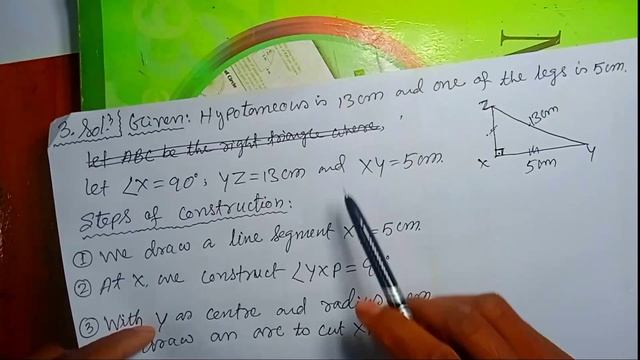 3. Sol? Given: Hypotaneous is 13cm and one of the legs is 5cm.
let ABC be the right triangle where,
let ∠X = 90°, YZ = 13cm and XY = 5cm.
Steps of construction:
① We draw a line segment X = 5cm.
② At X, we construct ∠YXP = 9
③ With Y as centre and radius cm
draw an arc to cut X
Z
13cm
X
5cm
Y